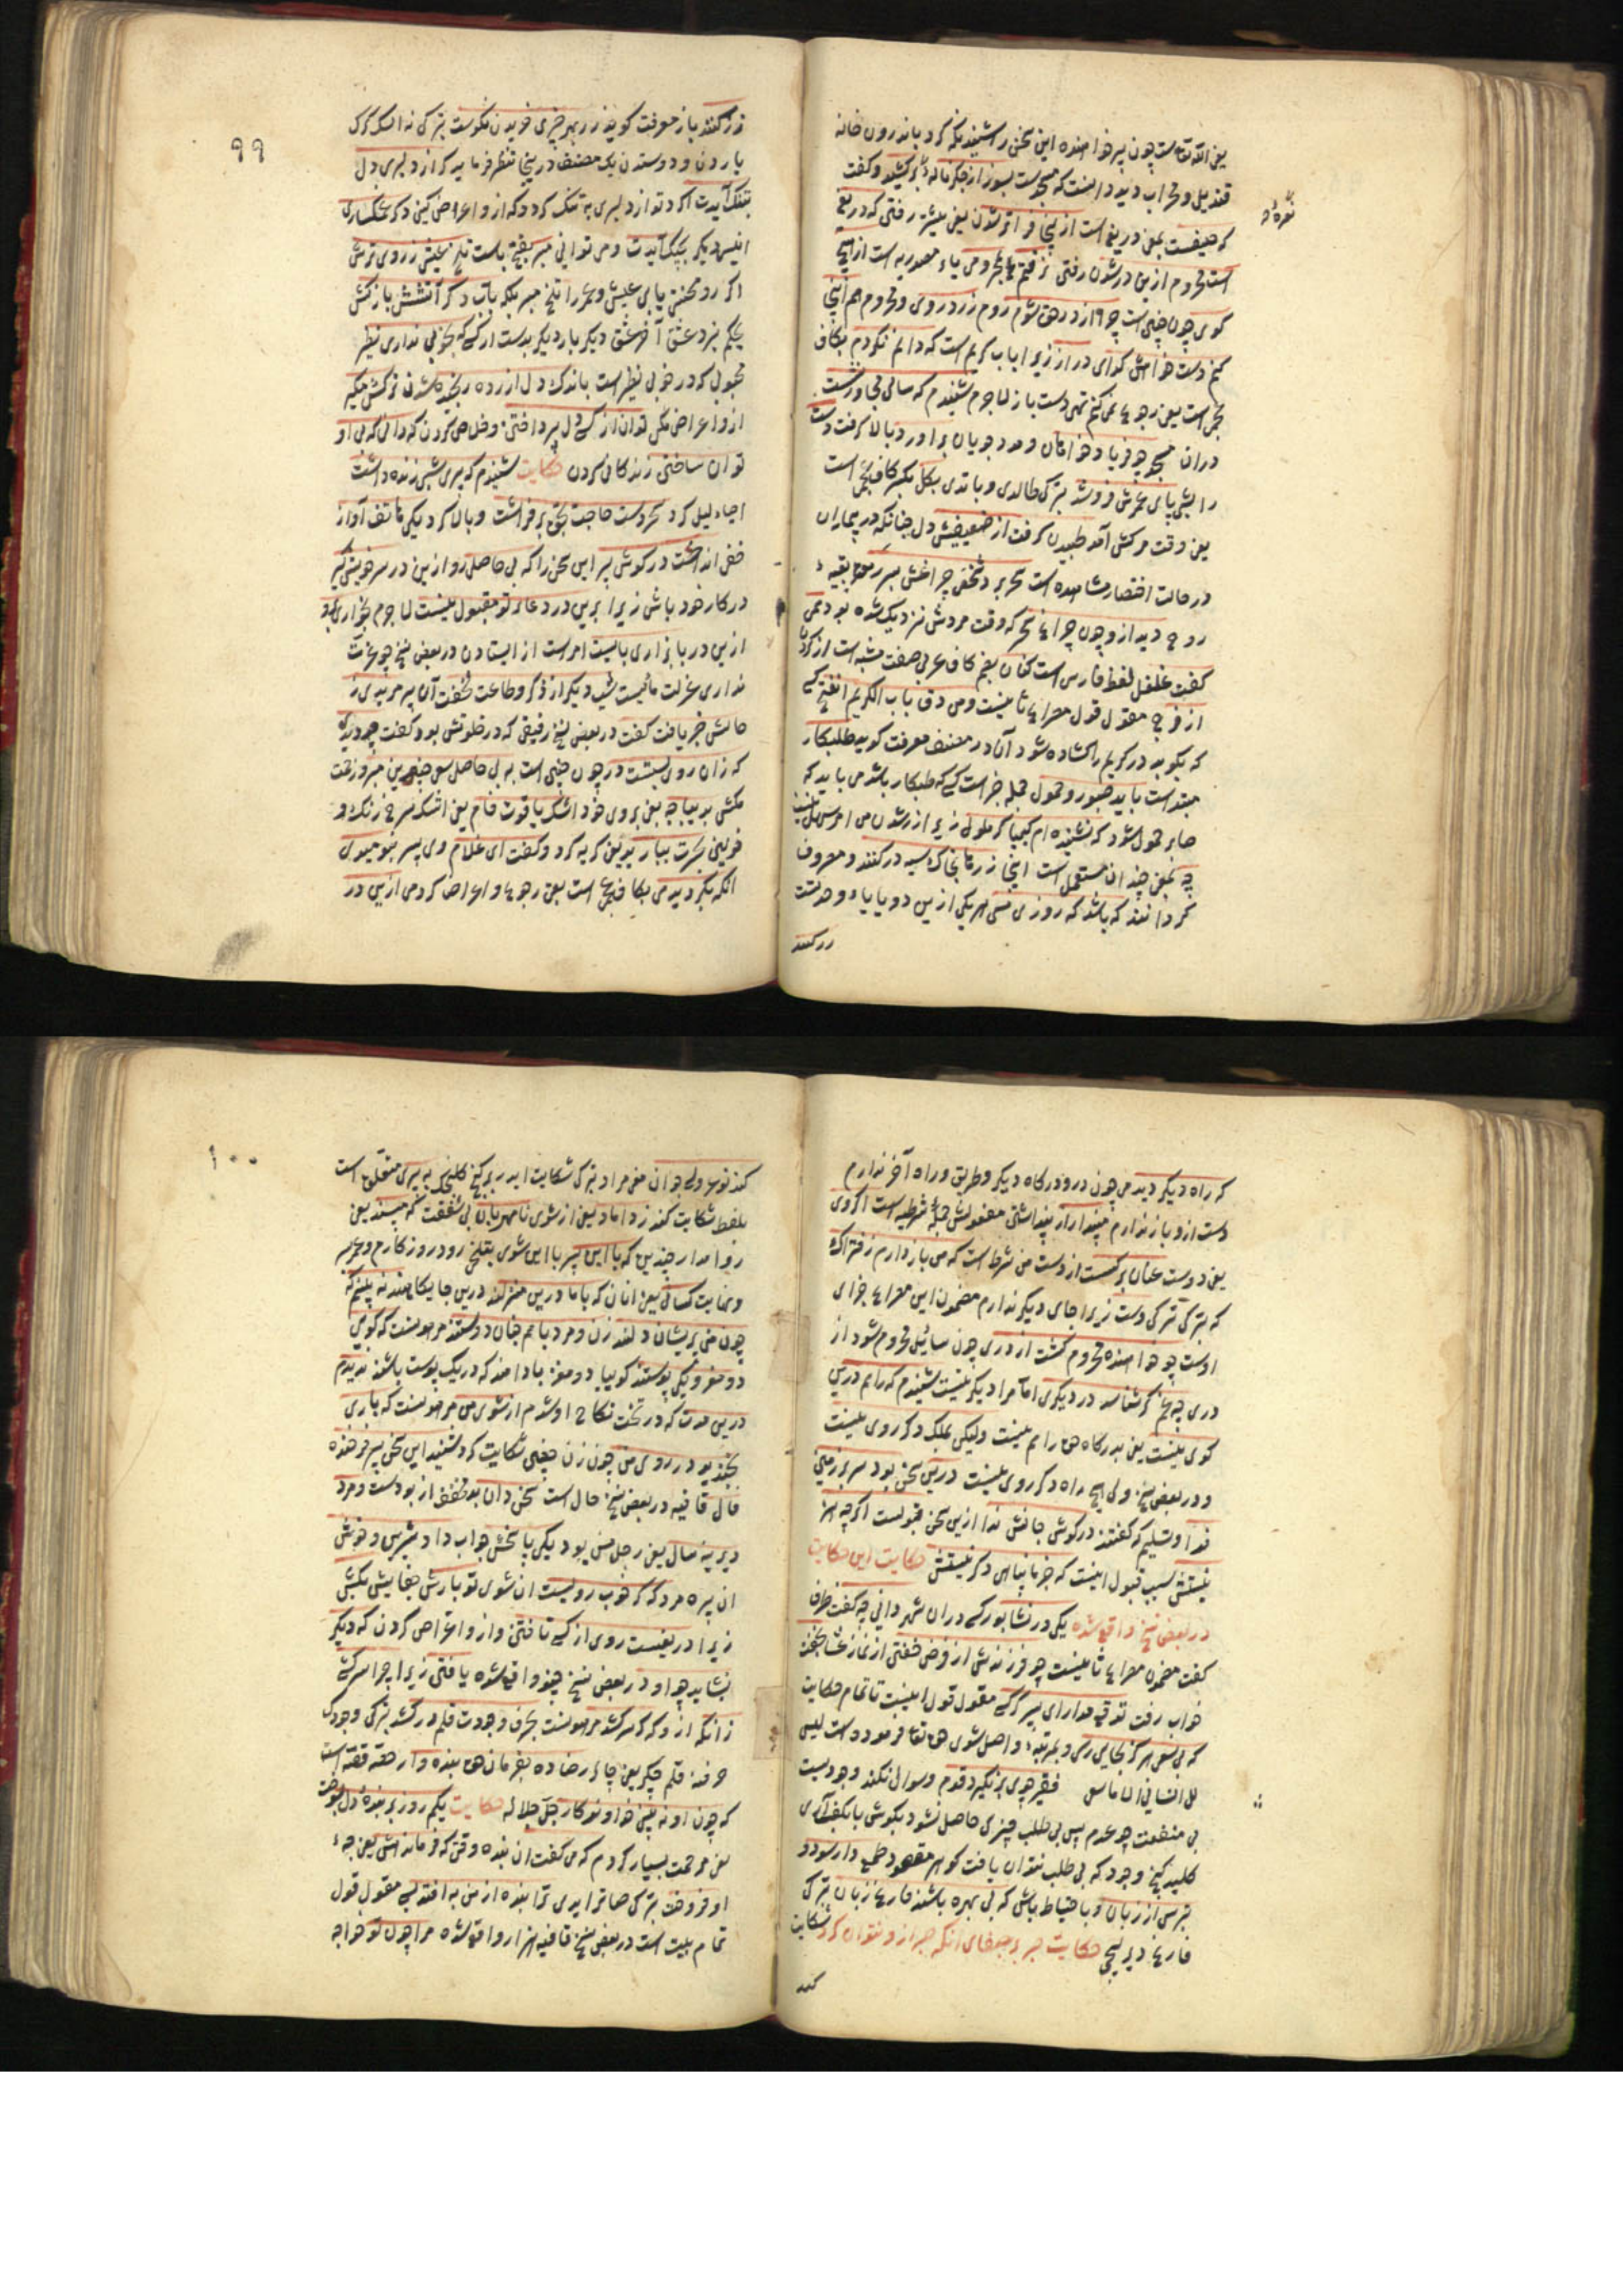 یعنی الله تعالی است چون پیر خواهنده این سخن را شنید نکه کرد باندرون خانه
قندیل و محراب دید دانست که مسجد است بسوز از جکر ناله برکشید و کفت
نعره
که حیفست بمعنی دریغ است از اینجا فراتر شدن یعنی بیشتر رفتن که دریغ
است محروم ازین در شدن رفتن نرفتم بمحرومی یاء مصدریه است از هیچ
کوی چون چنین است چرا از در حق شوم روم زرد روی و محروم هم اینجا
کنم دست خواهش کدای دراز زیرا ارباب کریم است که دانم نکردم بکاف
عجمی است یعنی رجوع نمی کنم تهی دست باز لاجرم شنیدم که سالی مجاور نشست
دران مسجد چو فریاد خواهان و مدد جویان براورد بالا کرفت دست
را شبی پای عمرش فروشد بترکی طالدی و باتدی بکل بکسر کاف عجمی است
یعنی وقت مرکش آمد طپیدن کرفت از ضعیفیش دل چنانکه در بیماران
در حالت احتضار مشاهده است سحر برد شخصی چراغش بسر رمق بقیه
روح دید ازو چون چراغ سحر که وقت مردنش نزدیک شده بود همی
کفت غلغل لفظ فارسی است کنان بضم کاف عربی صفت مشبه است از کردن
از فرح مقول قول مصراع ثانیست ومن دق باب الکریم انفتح کسی
که بکوبد در کریم را کشاده شود آن در مصنف معرفت کوید طلبکار
مبتداست باید صبور و حمول جمله خبر است کسی که طلبکار باشد می باید که
صابر حمول شود که نشنیده ام کیمیا کر ملول زیرا از شدن می امر سی
چه بمعنی چندان مستعمل است اینجا زرها بخاک سیه در کنند و معروف
کردانند که باشد که روزی مسی را یکی ازین دو یایاء وحدتست
زر کنند
۹۹
زر کنند باز معرفت کویند زر بهر چیزی خریدن نکوست بترکی نه المک کرک
یاردن و دوستدن یک مصنف در اینجا تنظیر فرماید کر از دلبری دل
بتنک آیدت اکر دتو از دلبری په تنک کردد که ازو اعراض کنی دکر غمکساری
انیس دیکر بچنک آیدت و می توانی مبر بفتح با است تلخ عیشی ز روی ترش
اکر رو محنتی یابی عیش و عمر را تلخ مبر بلکه بآب دکر آتشش باز کش
یحکم برد عشق آخر عشق دیکر بار دیکر بدست ار کسی که بخوبی نداری نظیر
محبوبی که در خوبی نظیر است باندک دل ازرده رنجیده شدن ترکش مکیر
ازو اعراض مکن توان از کسی دل بپرداختن و خلاص کردن که دانی که بی او
توان ساختن زندکانی کردن حکایت شنیدم که پیری شبی زنده داشت
احیاء لیل کرد سحر دست حاجت بحق برفراشت و بالا کرد یکی هاتف آواز
خفی انداخت در کوش پیر این سخن را که بی حاصلی رو ازین در سر خویش کیر
در کار خود باش زیرا برین در دعای تو مقبول نیست لاجرم بخواری برو
ازین در یا بزاری بایست امر است از ایستادن در بعضی نسخ چو عزت
نداری عزلت مایست شب دیکر از ذکر و طاعت نخفت آن پیر مریدی ز
حالش خبر یافت کفت در بعضی نسخ رفیقی که در خلوتش بود و کفت چو دیدی
که زان روی بستست در چون چنین است به بی حاصلی سعی چندین مبر و زحمت
مکش بدیباچه یعنی بروی خود اشک یاقوت فام یعنی اشک سرخ رنک و
خونین بحسرت ببارید یعنی کریه کرد و کفت ای غلام وی پسر بنومیدی
انکه بکردیدمی بکاف عجمی است یعنی رجوع و اعراض کردمی ازین در
که راه دیکر دیدمی چون در و درکاه دیکر و طریق و راه آخر ندارم
دست ازو باز ندارم مپندار ار پنداشتی مفعولش جمله شرطیه است اکر وی
یعنی دوست عنان برکسست از دست من شرط است که من باز دارم ز فتراک
که بترکی ترکی دست زیرا جای دیکر ندارم مضمون این مصراع جزای
اوست چو خواهنده محروم کشت از دری چون سائل محروم شود از
دری چه غم کر شناسد در دیکری اما مرا دیکر نیست شنیدم که راهم درین
کوی نیست یعنی بدرکاه حق راهم نیست ولیکن بملک دکر روی نیست
و در بعضی نسخ ولی هیچ راه دکر روی نیست درین سخن بود سر بر زمین
فدا و تسلیم که کفتند در کوش جانش ندا ازین سخن قبولست اکرچه هنر
نیستش سبب قبول اینست که جز ما پناهی دکر نیستش حکایت این حکایت
در بعضی نسخ واقع شده یکی در نشابور کسی دران شهر دانی چه کفت طرف
کفت مضمون مصراع ثانیست چو فرزندش از فرض خفتن از نماز عشا بخفت
خواب رفت توقع مدار ای پسر کر کسی مقول قول اینست تا تمام حکایت
که بی سعی هرکز بجایی رسی و بمرتبه واصل شوی حق تعالی فرموده است لیس
للانسان الا ما سعی فقیر چو برنکیرد قدوم وسوال نکند وجودیست
بی منفعت چو عدم پس بی طلب چیزی حاصل نشود بکوش تا بکف آری
کلید کنج وجود که بی طلب نتوان یافت کوهر مقصود طمع دار سود و
بترس از زیان و با احتیاط باش که بی بهره باشند فارغ زیان بترکی
فارغ دیرلیجی حکایت صبر بر جفای انکه صبر ازو نتوان کرد شکایت
کند
۱۰۰
کند نو عروسی جوان مفرمراد بترکی شکایت ایدر بر کنج کلنجک به پیری متعلق است
بلفظ شکایت کند ز داماد یعنی از شوی نامهربان بی شفقت که مپسند یعنی
روا مدار چندین که با این پسر با این شوی بتلخی رود روزکارم و عمر بسر
و نهایت کسانی یعنی انان که با ما درین منزلند درین جایکاهند نه بینم که
چون من پریشان دلند زن و مرد با هم چنان دوستند مرهونست که کویی
دو مغز و یکی پوستند کوییا دو مغز بادامند که در یک پوست باشند ندیدم
درین مدت که در تحت نکاح اوشدم از شوی من مرهونست که باری
بخندید در روی من چون زن چنین شکایت کرد شنید این سخن پیر فرخنده
فال قافیه در بعضی نسخ حال است سخن دان بود مخفف از بودست و مرد
دیرینه سال یعنی رجل مسن بود یکی پاسخش جواب داد شیرین و خوش
ان پیره مرد که کر خوب رویست ان شوی تو بارش جفایش بکش
زیرا دریغست روی از کسی تافتن وازو اعراض کردن که دیکر
نشاید چو او در بعضی نسخ چنو واقع شده یافتن زیرا چرا سرکشی
زانکه ازو که کر سرکشد مرهونست بحرف وجودت قلم درکشد بترکی وجودک
حرفنه قلم چکر یعنی چاره رضا ده بفرمان حق بنده وار هقه قصه است
که چون او نه بینی خداوندکار جل جلاله حکایت یکم روز بر بنده دل بسوخت
یعنی مرحمت بسیار کردم که می کفت ان بنده وقتی که فرمانداهش یعنی خواجه
او فروخت بترکی صاترایدی ترا بنده از من به افتد بسی مقول قول
تمام بیت است در بعضی نسخ قافیه هزار واقع شده مرا چون تو خواجه